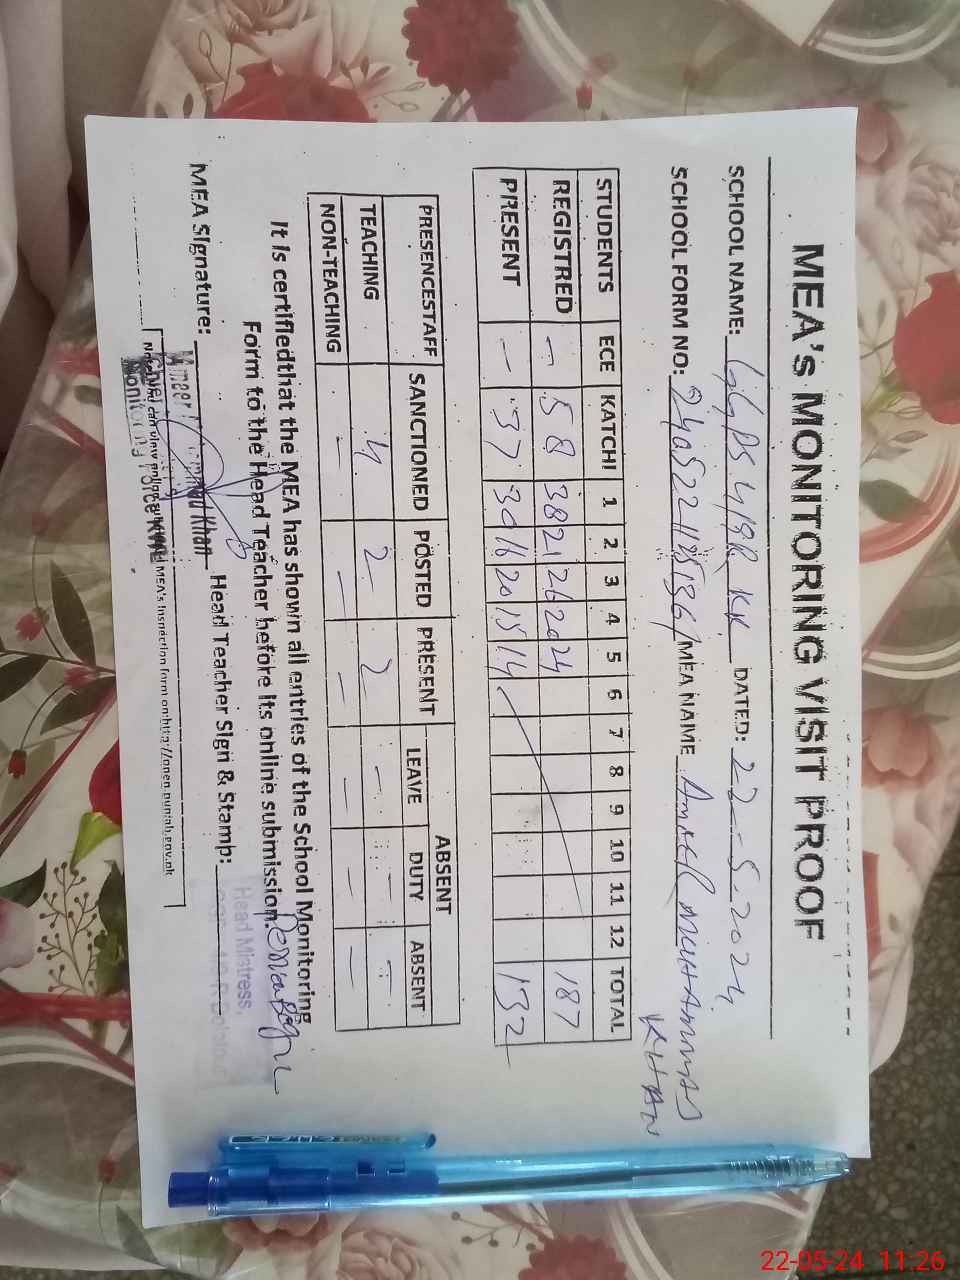 MEA's MONITORING VISIT PROOF
SCHOOL NAME: GGPS 419R KK DATED: 22-5-2024
SCHOOL FORM NO: MEA NAME Ameer MUHAMMAD KHAN
STUDENTS ECE KATCHI 1 2 3 4 5 6 7 8 9 10 11 12 TOTAL
REGISTRED - 58 38 21 26 20 24 187
PRESENT - 37 30 16 20 15 14 132
PRESENCESTAFF SANCTIONED POSTED PRESENT ABSENT
LEAVE DUTY ABSENT
TEACHING 4 2 2 - - -
NON-TEACHING - - - - - -
It is certifiedthat the MEA has shown all entries of the School Monitoring
Form to the Head Teacher before its online submission.
MEA Signature: Head Teacher Sign & Stamp:
Khan
Head Mistress,
Monitoring Force
MEA's Inspection form on:http://open.punjab.gov.pk
22-05-24 11:26